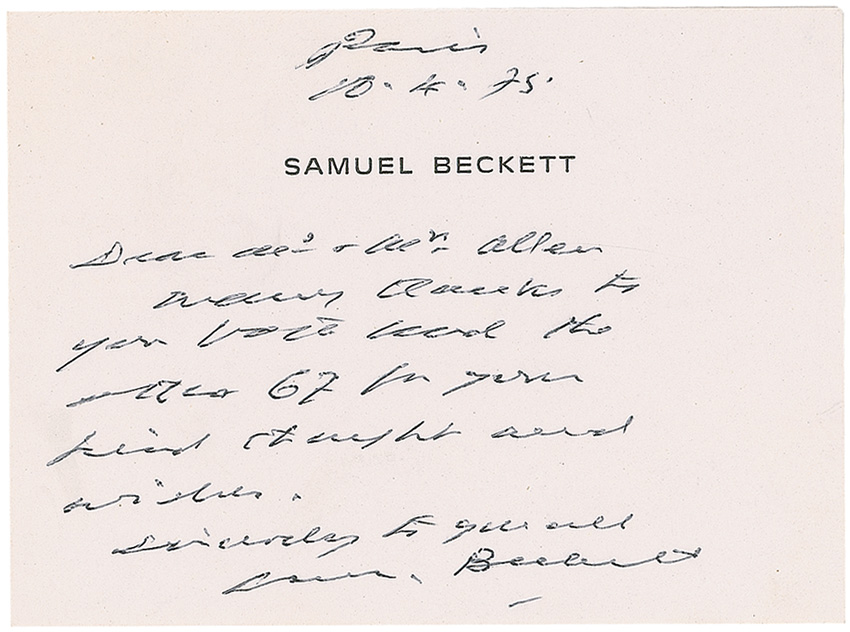 Paris
10. 4. 75.
SAMUEL BECKETT
Dear Mrs + Mr. Allen
Many thanks to
you both and the
other 67 for your
kind thought and
wishes.
Sincerely to you all
Sam. Beckett